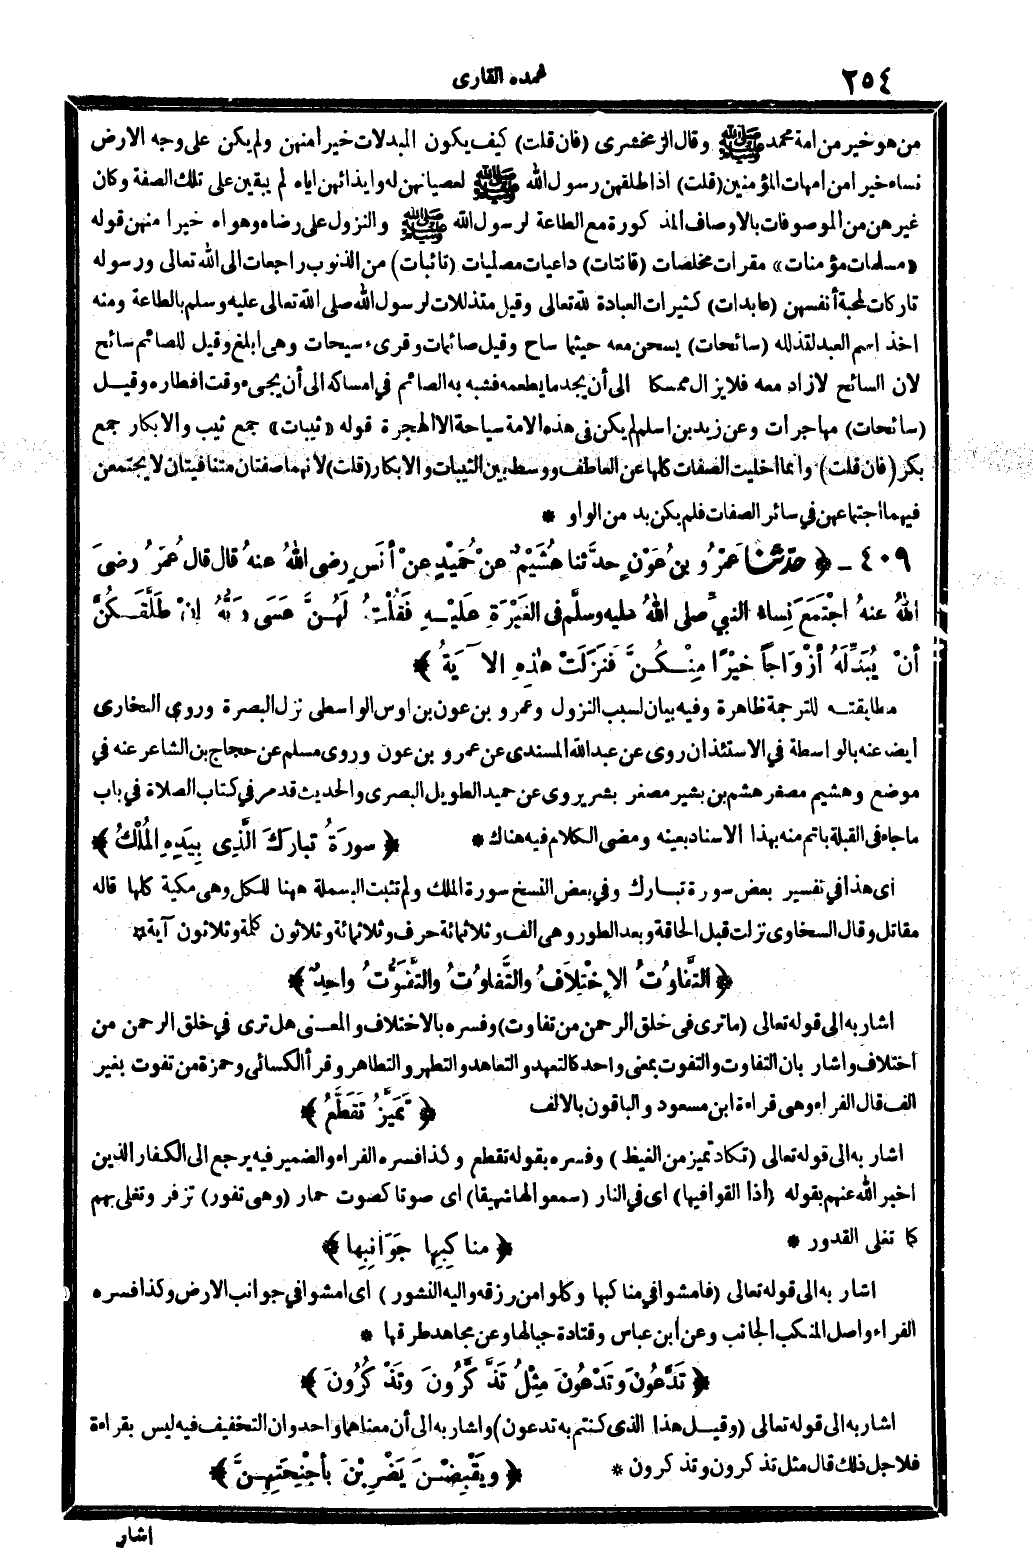 ٢٥٤
عمدة القارى
من هو خير من امة محمد ﷺ وقال الزمخشرى (فان قلت) كيف يكون المبدلات خيرا منهن ولم يكن على وجه الارض
نساء خيرا من امهات المؤمنين (قلت) اذا طلقهن رسول الله ﷺ لعصيانهن له وايذائهن اياه لم يبقين على تلك الصفة وكان
غيرهن من الموصوفات بالاوصاف المذكورة مع الطاعة لرسول الله ﷺ والنزول على رضاه وهواه خيرا منهن قوله
«مسلمات مؤمنات» مقرات مخلصات (قانتات) داعيات مصليات (تائبات) من الذنوب راجعات الى الله تعالى ورسوله
تاركات لمحبة أنفسهن (عابدات) كثيرات العبادة لله تعالى وقيل متذللات لرسول الله صلى الله تعالى عليه وسلم بالطاعة ومنه
اخذ اسم العبد لتذلله (سائحات) يسحن معه حيثما ساح وقيل صائمات وقرىء سيحات وهى ابلغ وقيل للصائم سائح
لان السائح لازاد معه فلا يزال ممسكا الى أن يجد ما يطعمه فشبه به الصائم في امساكه الى أن يجىء وقت افطاره وقيل
(سائحات) مهاجرات وعن زيد بن اسلم لم يكن فى هذه الامة سياحة الا الهجرة قوله «ثيبات» جمع ثيب والابكار جمع
بكر (فان قلت) وانما اخليت الصفات كلها عن العاطف ووسط بين الثيبات والابكار (قلت) لانهما صفتان متنافيتان لا يجتمعن
فيهما اجتماعهن في سائر الصفات فلم يكن بد من الواو *
٤٠٩ - ﴿ حدّثنا عَمْرُو بن عَوْنٍ حدَّثنا هُشَيْمٌ عنْ حُمَيْدٍ عنْ أنَسٍ رضى اللهُ عنهُ قال قال عُمَرُ رضىَ
اللهُ عنهُ اجْتَمَعَ نِساءُ النبيِّ صلى اللهُ عليه وسلَّم فى الغَيْرَةِ عَلَيْهِ فَقُلْتُ لَهُنَّ عَسَى رَبُّهُ إِنْ طَلَّقَكُنَّ
أنْ يُبَدِّلَهُ أزْوَاجاً خَيْرًا مِنْكُنَّ فَنَزَلَتْ هٰذِهِ الآيَةُ ﴾
مطابقته للترجمة ظاهرة وفيه بيان لسبب النزول وعمرو بن عون بن اوس الواسطى نزل البصرة وروى البخارى
أيضا عنه بالواسطة في الاستئذان روى عن عبدالله المسندى عن عمرو بن عون وروى مسلم عن حجاج بن الشاعر عنه في
موضع وهشيم مصغر هشم بن بشير مصغر بشر يروى عن حميد الطويل البصرى والحديث قد مر في كتاب الصلاة في باب
ماجاء فى القبلة باتم منه بهذا الاسناد بعينه ومضى الكلام فيه هناك *
﴿ سورَةُ تبارَكَ الَّذِى بِيَدِهِ المُلْكُ ﴾
أى هذا في تفسير بعض سورة تبارك وفي بعض النسخ سورة الملك ولم تثبت البسملة ههنا للكل وهى مكية كلها قاله
مقاتل وقال السخاوى نزلت قبل الحاقة وبعد الطور وهى الف وثلاثمائة حرف وثلاثمائة وثلاثون كلمة وثلاثون آية *
﴿ التَّفاوُتُ الإخْتِلاَفُ والتَّفاوُتُ والتَّفَوُّتُ واحِدٌ ﴾
اشار به الى قوله تعالى (ماترى فى خلق الرحمن من تفاوت) وفسره بالاختلاف والمعنى هل ترى في خلق الرحمن من
اختلاف واشار بان التفاوت والتفوت بمعنى واحد كالتعهد والتعاهد والتطهر والتطاهر وقرأ الكسائى وحمزة من تفوت بغير
الف قال الفراء وهى قراءة ابن مسعود والباقون بالالف
﴿ تَمَيَّزُ تَقَطَّعُ ﴾
اشار به الى قوله تعالى (تكاد تميز من الغيظ) وفسره بقوله تقطع وكذا فسره الفراء والضمير فيه يرجع الى الكفار الذين
اخبر الله عنهم بقوله (اذا القوا فيها) اى في النار (سمعوا لها شهيقا) اى صوتا كصوت حمار (وهى تفور) تزفر وتغلى بهم
كما تغلى القدور *
﴿ مناكِبِها جَوَانِبِها ﴾
اشار به الى قوله تعالى (فامشوا في مناكبها وكلوا من رزقه واليه النشور) اى امشوا في جوانب الارض وكذا فسره
الفراء واصل المنكب الجانب وعن ابن عباس وقتادة جبالها وعن مجاهد طرقها *
﴿ تَدَّعُونَ وتَدْعُونَ مِثْلُ تَذَّكَّرُونَ وتَذْكُرُونَ ﴾
اشار به الى قوله تعالى (وقيل هذا الذى كنتم به تدعون) واشار به الى أن معناهما واحد وان التخفيف فيه ليس بقراءة
فلاجل ذلك قال مثل تذكرون وتذكرون *
﴿ ويَقْبِضْنَ يَضْرِبْنَ بأجْنِحَتِهِنَّ ﴾
اشار